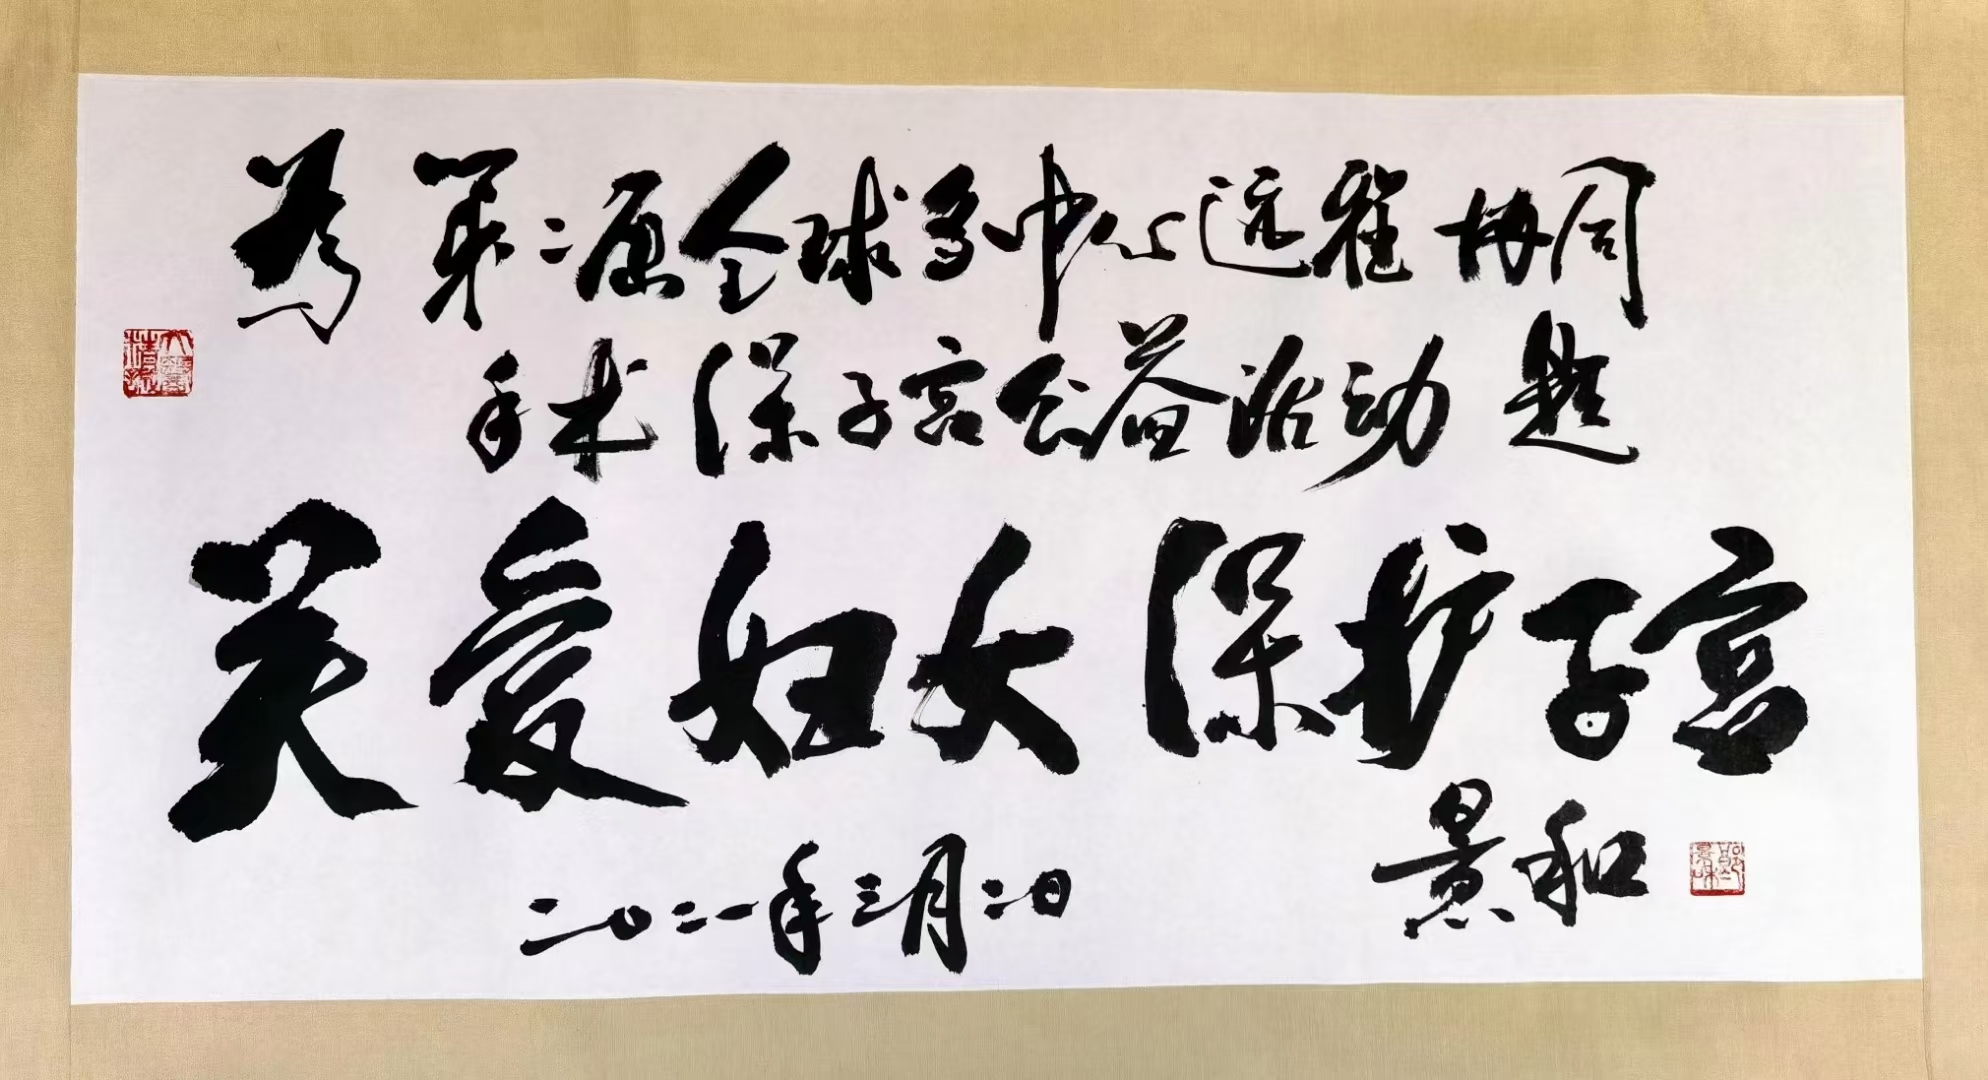 为第二届全球多中心远程协同
手术保子宫公益活动 题
关爱妇女 保护子宫
景和
二〇二一年三月二日